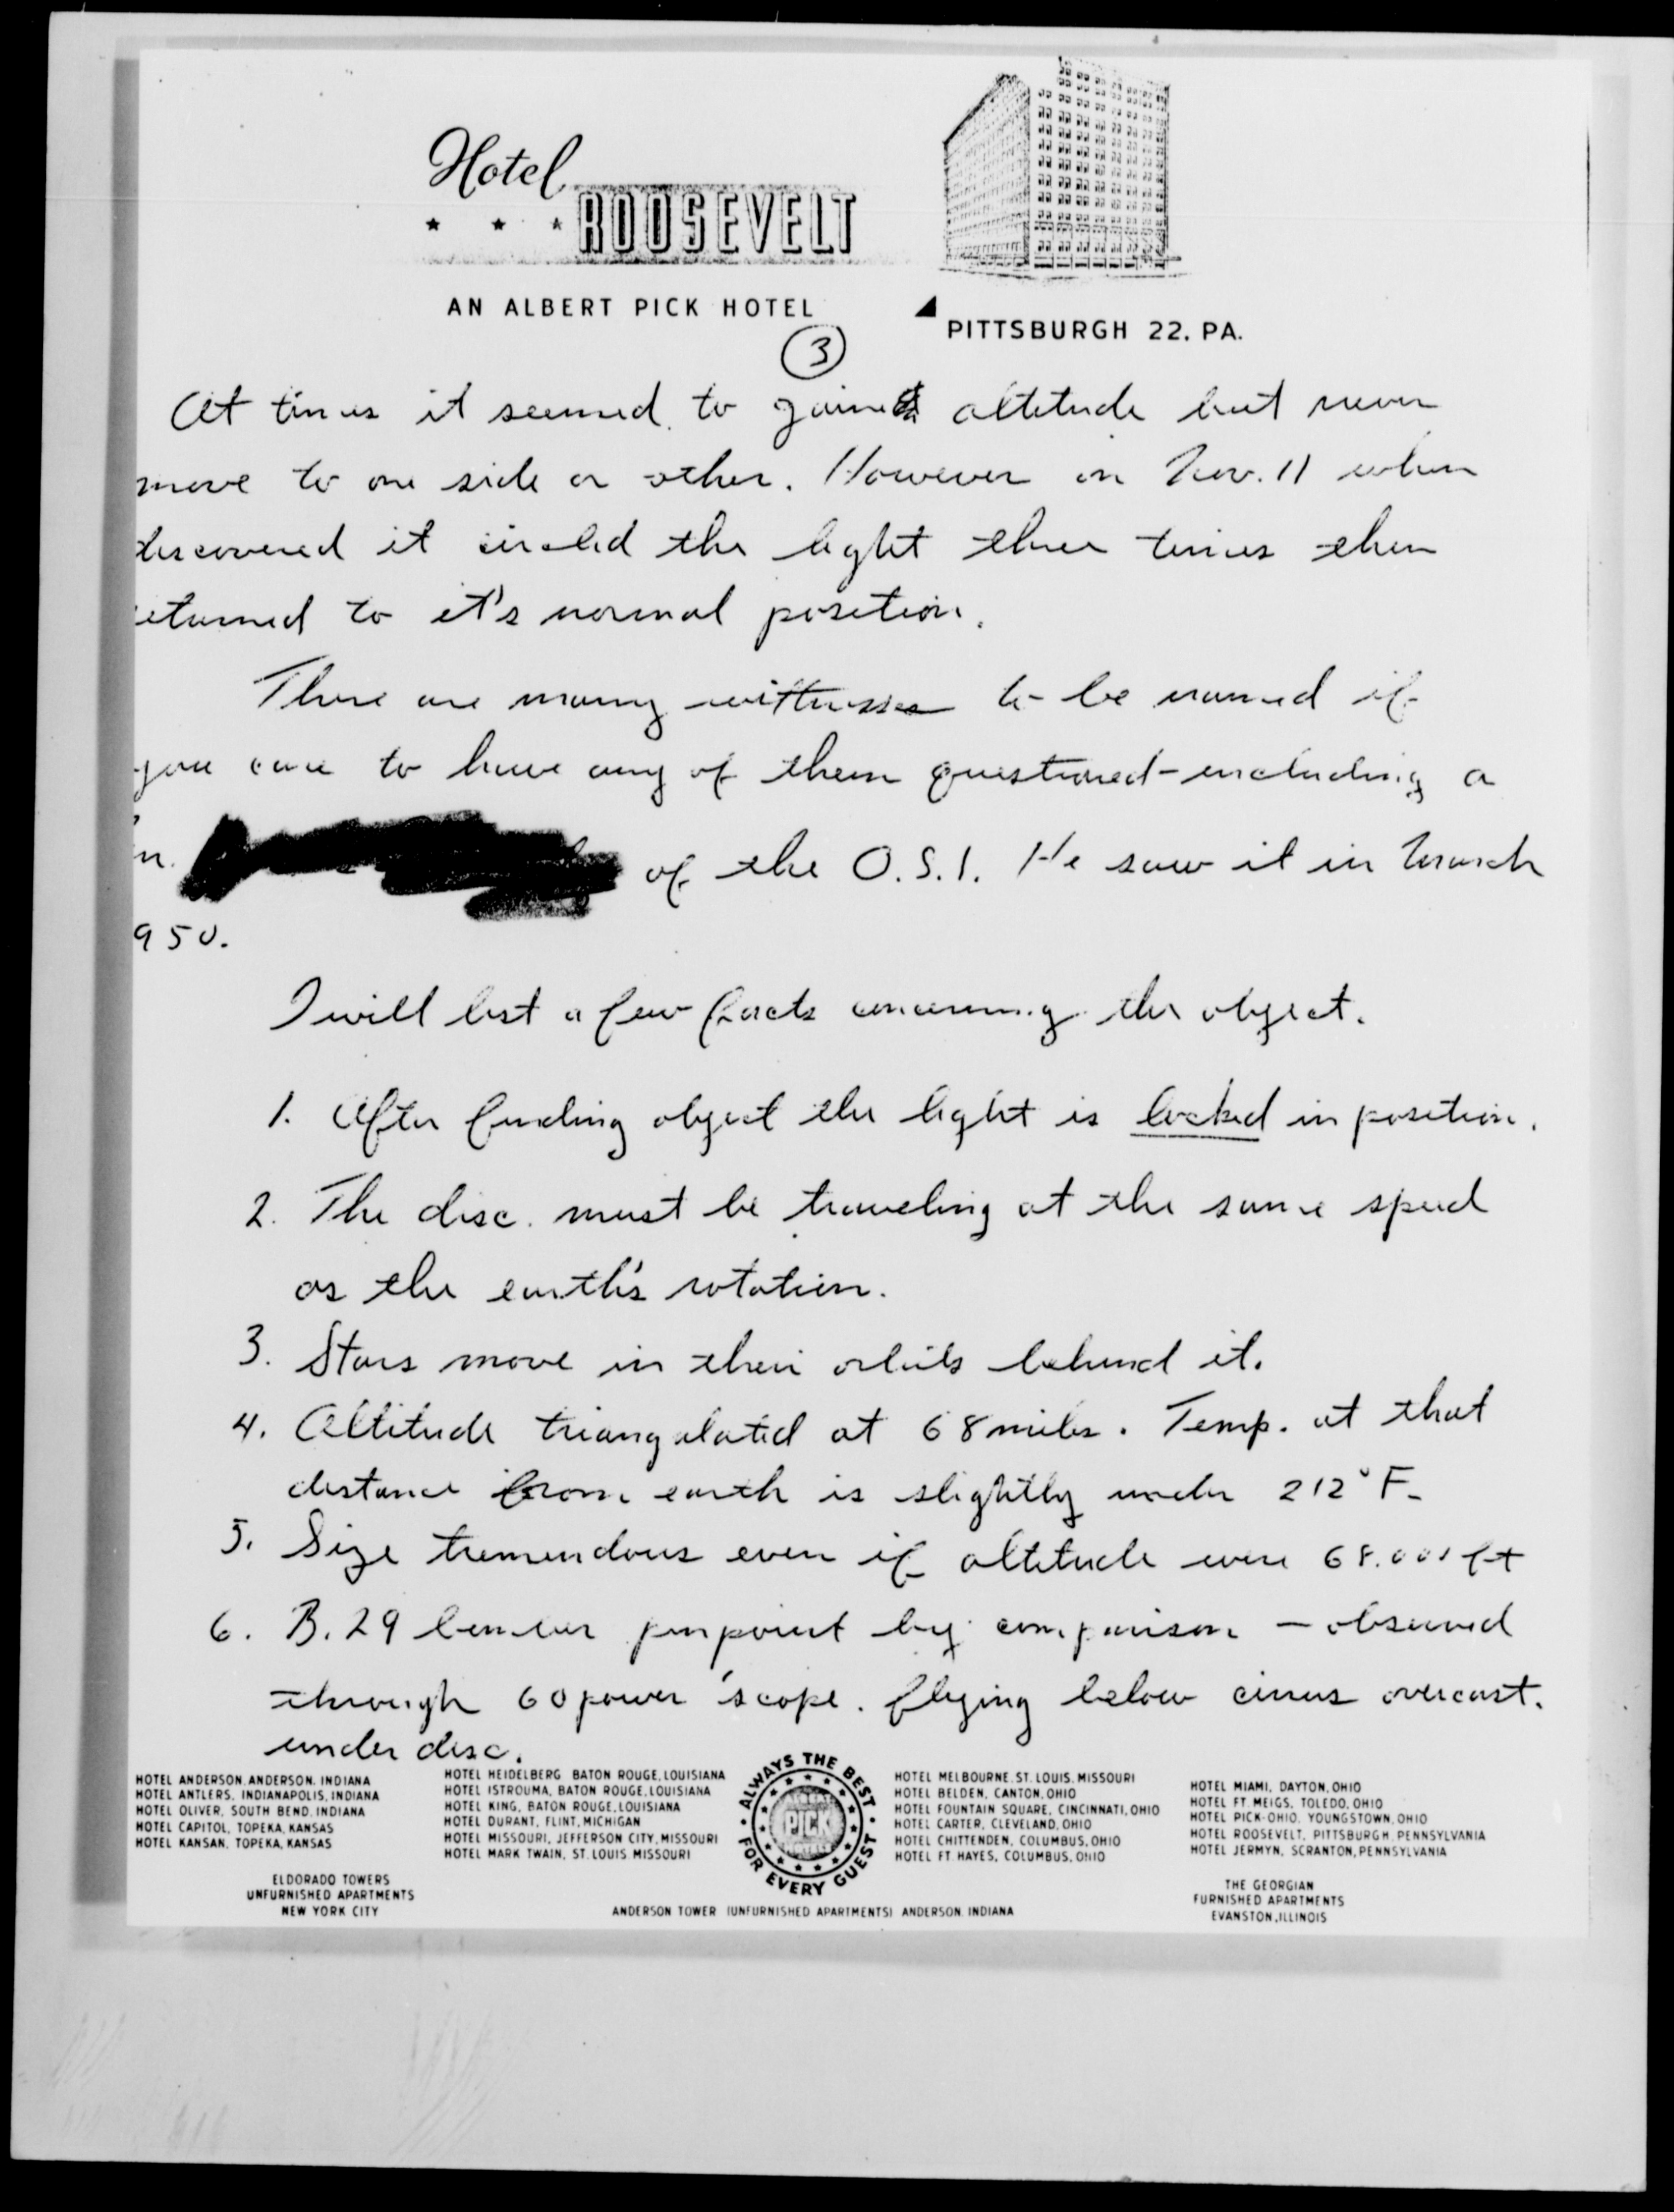 Hotel
ROOSEVELT
AN ALBERT PICK HOTEL
PITTSBURGH 22. PA.
3
At times it seemed to gain altitude but never
move to one side or other. However on Nov. 11 when
discovered it circled the light three times then
eturned to it's normal position.
There are many wittnesses to be named if
you care to have any of them questioned - including a
of the O.S.I. He saw it in March
950.
I will list a few facts concerning the object.
1. After finding object the light is locked in position.
2. The disc must be traveling at the same speed
as the earth's rotation.
3. Stars move in their orbits behind it.
4. Altitude triangulated at 68 miles. Temp. at that
distance from earth is slightly under 212° F.
5. Size tremendous even if altitude were 68.000 ft
6. B.29 bomber pinpoint by comparison - observed
through 60 power 'scope. flying below cirrus overcast.
under disc.
HOTEL ANDERSON, ANDERSON, INDIANA
HOTEL ANTLERS, INDIANAPOLIS, INDIANA
HOTEL OLIVER, SOUTH BEND, INDIANA
HOTEL CAPITOL, TOPEKA, KANSAS
HOTEL KANSAN, TOPEKA, KANSAS
ELDORADO TOWERS
UNFURNISHED APARTMENTS
NEW YORK CITY
HOTEL HEIDELBERG BATON ROUGE, LOUISIANA
HOTEL ISTROUMA, BATON ROUGE, LOUISIANA
HOTEL KING, BATON ROUGE, LOUISIANA
HOTEL DURANT, FLINT, MICHIGAN
HOTEL MISSOURI, JEFFERSON CITY, MISSOURI
HOTEL MARK TWAIN, ST. LOUIS MISSOURI
ALWAYS THE BEST
PICK
FOR EVERY GUEST
ANDERSON TOWER (UNFURNISHED APARTMENTS) ANDERSON, INDIANA
HOTEL MELBOURNE, ST. LOUIS, MISSOURI
HOTEL BELDEN, CANTON, OHIO
HOTEL FOUNTAIN SQUARE, CINCINNATI, OHIO
HOTEL CARTER, CLEVELAND, OHIO
HOTEL CHITTENDEN, COLUMBUS, OHIO
HOTEL FT HAYES, COLUMBUS, OHIO
HOTEL MIAMI, DAYTON, OHIO
HOTEL FT. MEIGS, TOLEDO, OHIO
HOTEL PICK-OHIO, YOUNGSTOWN, OHIO
HOTEL ROOSEVELT, PITTSBURGH, PENNSYLVANIA
HOTEL JERMYN, SCRANTON, PENNSYLVANIA
THE GEORGIAN
FURNISHED APARTMENTS
EVANSTON, ILLINOIS